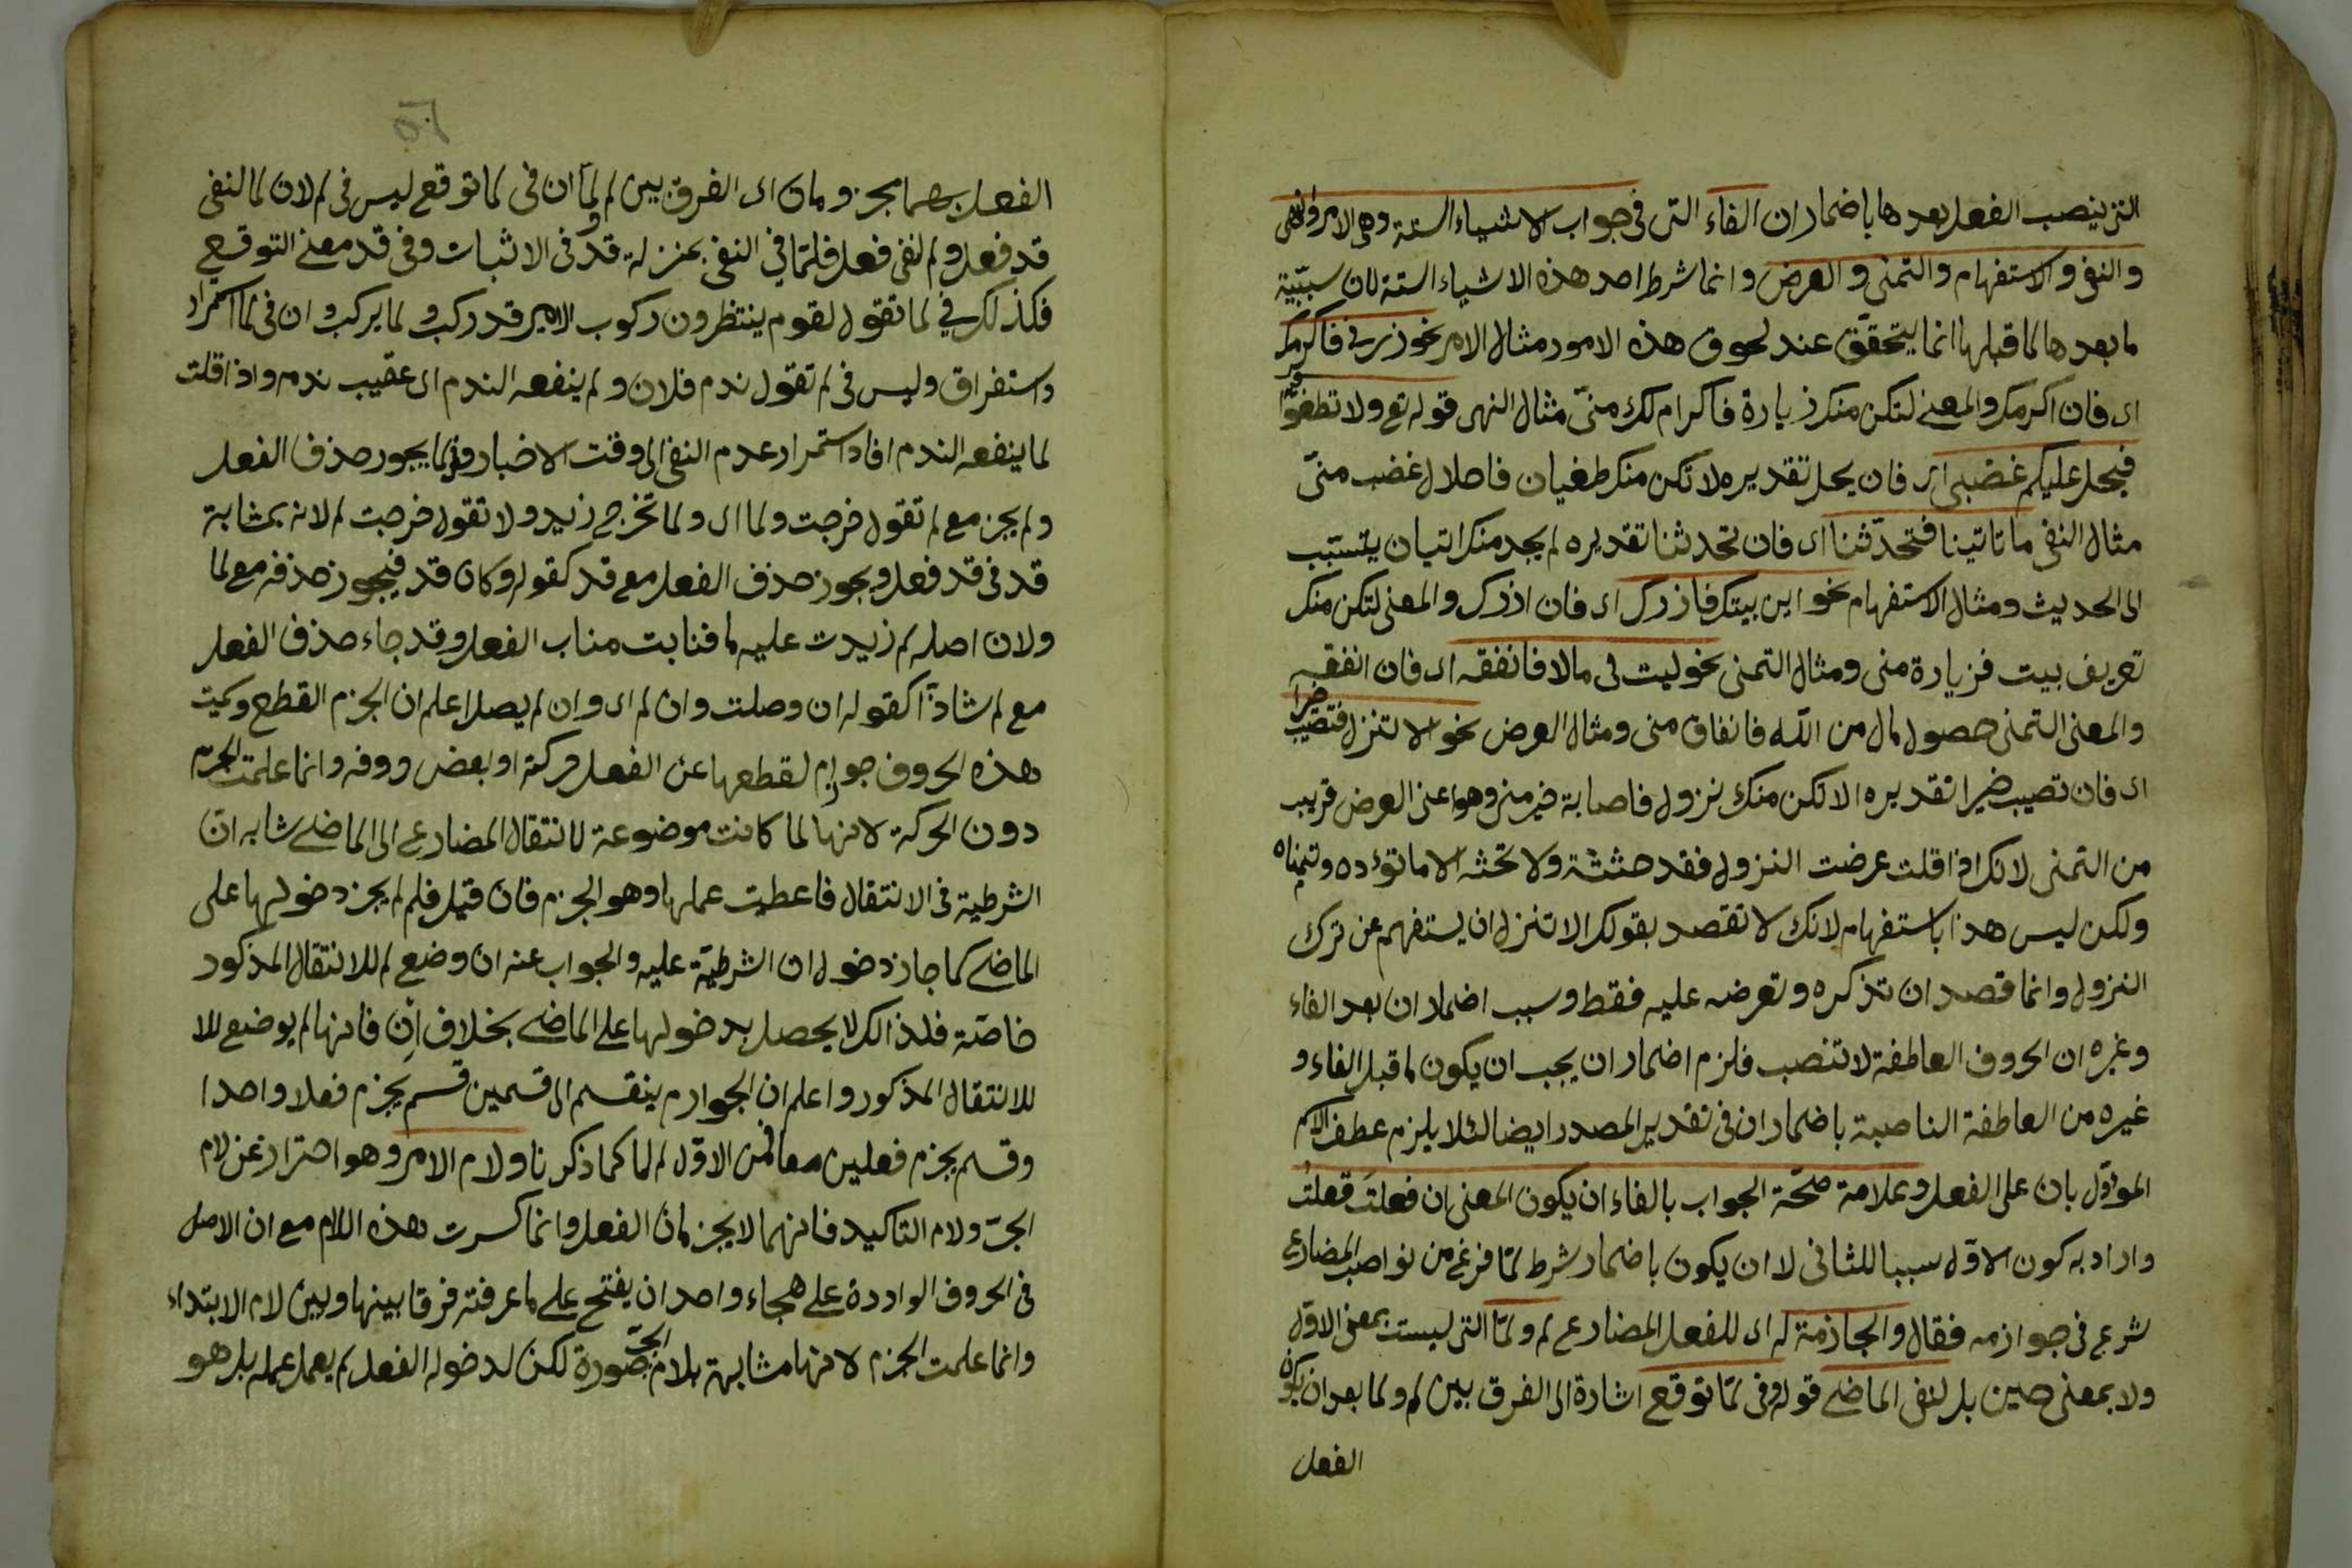 التي ينصب الفعل بعدها باضمار ان الفاء التى فى جواب الاشياء الستة وهى الامر والنهى
والنفى والاستفهام والتمنى والعرض وانما شرط احد هذه الاشياء الستة لان سببيّة
ما بعدها لما قبلها انما يتحقق عند لحوق هذه الامور مثال الامر نحو زرنى فاكرمك
اى فان اكرمك والمعنى لتكن منك زيارة فاكرام لك منّى مثال النهى قوله تع ولا تطغوا فيه
فيحل عليكم غضبى اى فان يحل تقديره لا تكن منك طغيان فاحلال غضب منّى
مثال النفى ما تاتينا فتحدّثنا اى فان تحدثنا تقديره لم يجد منك اتيان يتسبّب
الى الحديث ومثال الاستفهام نحو اين بيتك فازرك اى فان ازرك والمعنى لتكن منك
تعريف بيت فزيارة منى ومثال التمنى نحو ليت لى مالا فانفقه اى فان انفقه
والمعنى التمنى حصول مال من الله فانفاق منى ومثال العرض نحو الا تنزل فتصيب خيرا
اى فان تصيب خيرا تقديره الا لكن منك نزول فاصابة خير منى وهو اعنى العرض قريب
من التمنى لانك اذا قلت عرضت النزول فقد حثثته ولا تحثه الا ما تؤده وتمناه
ولكن ليس هذا باستفهام لانك لا تقصد بقولك الا تنزل ان يستفهم عن ترك
النزول وانما قصد ان تذكره وتعرضه عليه فقط وسبب اضمار ان بعد الفاء
وغيره ان الحروف العاطفة لا تنصب فلزم اضمار ان يجب ان يكون لما قبل الفاء و
غيره من العاطفة الناصبة باضمار ان فى تقدير المصدر ايضا لئلا يلزم عطف الاسم
المؤوّل بان على الفعل وعلامة صحّة الجواب بالفاء ان يكون المعنى ان فعلتَ فعلتُ
واراد به كون الاول سببا للثانى لا ان يكون باضمار شرط لمّا فرغ من نواصب المضارع
شرع فى جوازمه فقال والجازمة له اى للفعل المضارع لم ولمّا التى ليست بمعنى الاوّل
ولا بمعنى حين بل لنفى الماضى قوله وفى لمّا توقع اشارة الى الفرق بين لم ولما بعد ان يكون
الفعل
الفعل بهما مجزومان اى الفرق بين لم ولمّا ان فى لما توقع ليس فى لم لان لما لنفى
قد فعل ولم لنفى فعل فلمّا فى النفى بمنزلة قد فى الاثبات وفى قد معنى التوقع
فكذلك فى لما تقول لقوم ينتظرون ركوب الامير قد ركب ولما يركب وان فى لما استمرار
واستغراق وليس فى لم تقول ندم فلان ولم ينفعه الندم اى عقيب ندمه واذا قلت
لما ينفعه الندم افاد استمرار عدم النفى الى وقت الاخبار وفى لما يجوز حذف الفعل
ولم يجز مع لم تقول خرجت ولما اى ولما تخرج زيد ولا تقول خرجت لم لانه بمشابة
قد فى قد فعل ويجوز حذف الفعل مع قد كقوله وكان قد فيجوز حذفه مع لما
ولان اصله لم زيدت عليه ما فنابت مناب الفعل وقد جاء حذف الفعل
مع لم شاذّا كقوله ان وصلت وان لم اى وان لم يصل اعلم ان الجزم القطع وسميت
هذه الحروف جوازم لقطعها عن الفعل حركته او بعض حروفه وانما علمت الجزم
دون الحركة لانها لما كانت موضوعة لانتقال المضارع الى الماضى شابه ان
الشرطية فى الانتقال فاعطيت عملها وهو الجزم فان قيل فلم لم يجز دخولها على
الماضى كما جاز دخول ان الشرطيّة عليه والجواب عنه ان وضع لم للانتقال المذكور
خاصّة فلذالك لا يحصل بدخولها على الماضى بخلاف ان فانها لم يوضع للا
للانتقال المذكور واعلم ان الجوازم ينقسم الى قسمين قسم يجزم فعلا واحدا
وقسم يجزم فعلين معا فمن الاوّل لم لما كما ذكرنا ولام الامر وهو احتراز عن لام
الجرّ ولام التاكيد فانهما لا يجزمان الفعل وانما كسرت هذه اللام مع ان الاصل
فى الحروف الواردة على هجاء واحد ان يفتح على ما عرفته فرقا بينها وبين لام الابتداء
وانما علمت الجزم لانها مشابهة بلام الجرّ صورة لكن لدخوله الفعل لم يعمل عمله بل هو